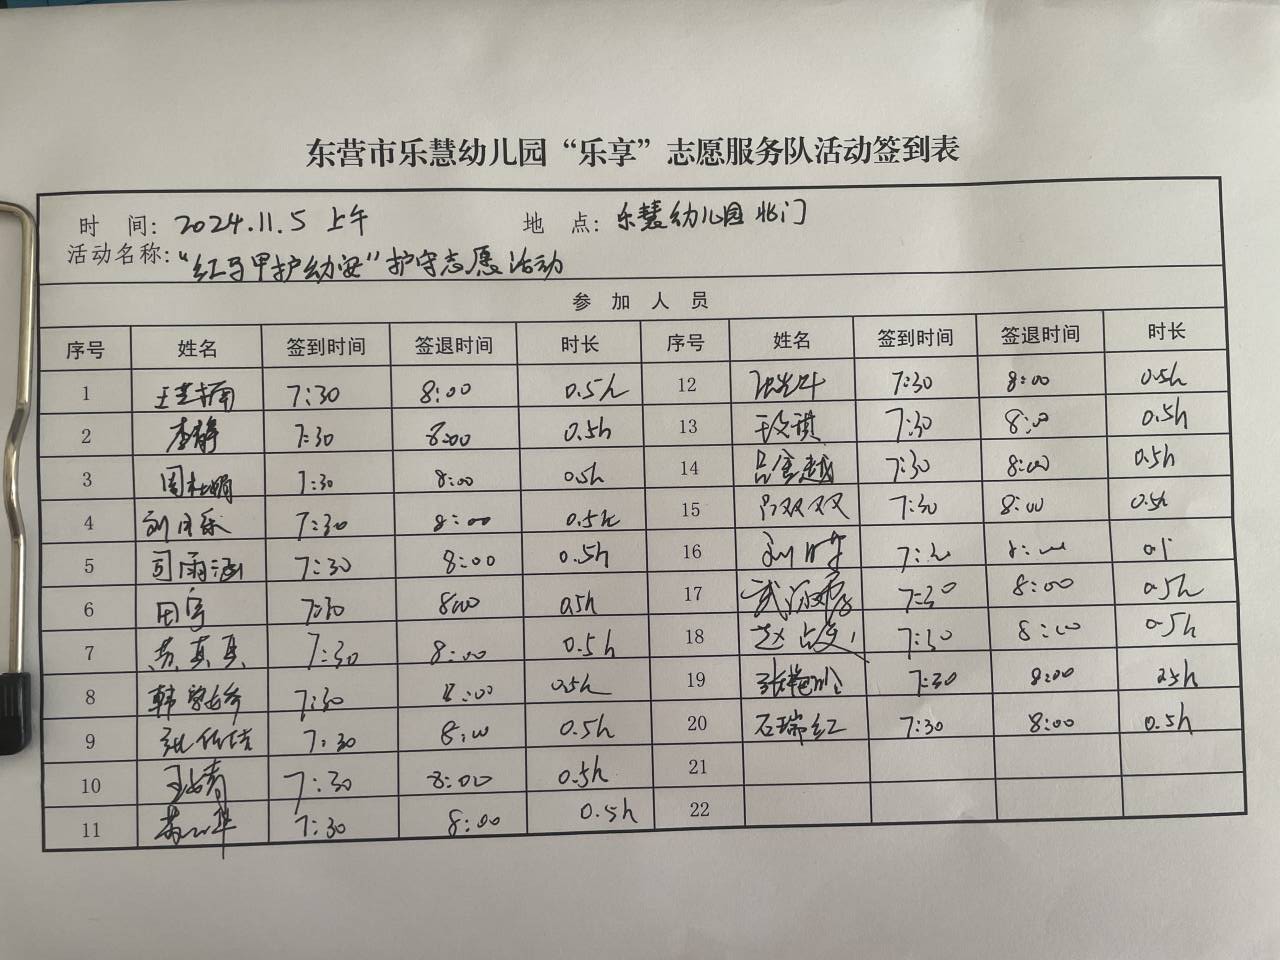 东营市乐慧幼儿园“乐享”志愿服务队活动签到表
时 间: 2024.11.5 上午 地 点: 乐慧幼儿园北门
活动名称: “红马甲护幼安”护守志愿活动
参 加 人 员
序号 姓名 签到时间 签退时间 时长 序号 姓名 签到时间 签退时间 时长
1 7:30 8:00 0.5h 12 7:30 8:00 0.5h
2 李静 7:30 8:00 0.5h 13 7:30 8:00 0.5h
3 7:30 8:00 0.5h 14 吕金越 7:30 8:00 0.5h
4 7:30 8:00 0.5h 15 吕双双 7:30 8:00 0.5h
5 司雨涵 7:30 8:00 0.5h 16 7:30 8:00
6 田宇 7:30 8:00 0.5h 17 7:30 8:00 0.5h
7 苏真真 7:30 8:00 0.5h 18 7:30 8:00 0.5h
8 7:30 8:00 0.5h 19 7:30 8:00
9 7:30 8:00 0.5h 20 石瑞红 7:30 8:00 0.5h
10 7:30 8:00 0.5h 21
11 7:30 8:00 0.5h 22